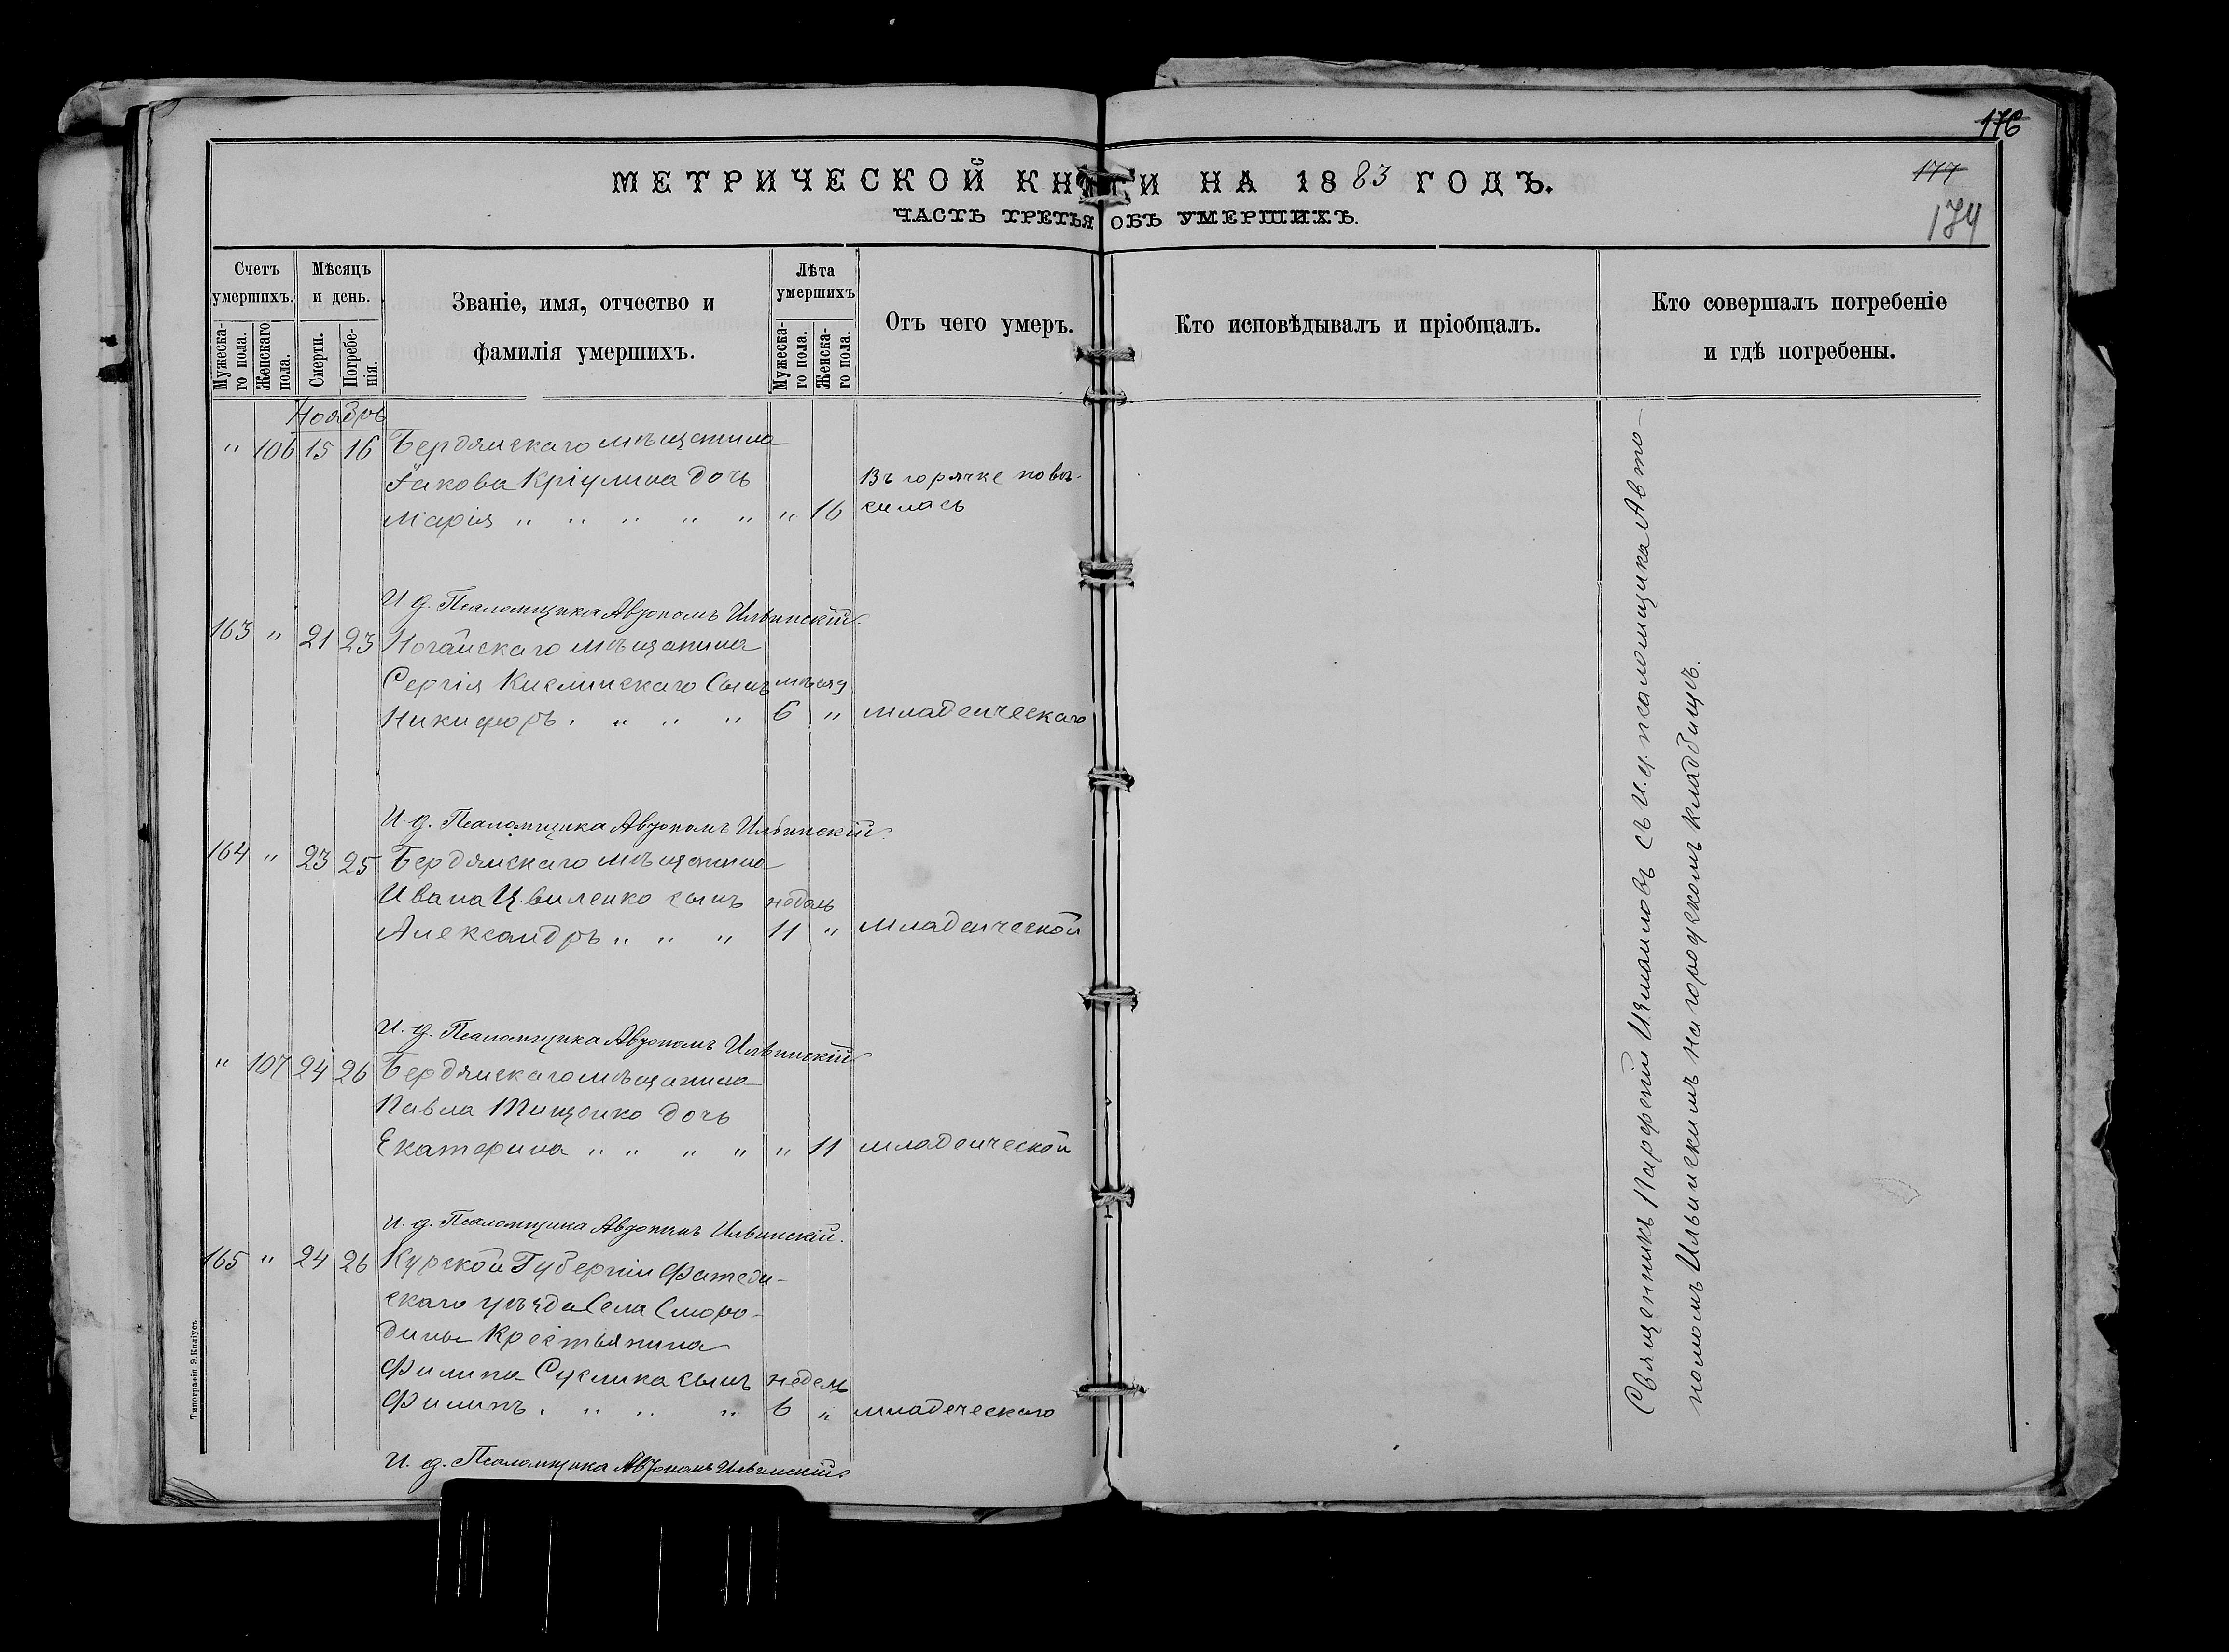 176
177
174
МЕТРИЧЕСКОЙ КНИГИ НА 1883 ГОДЪ.
ЧАСТЬ ТРЕТЬЯ ОБЪ УМЕРШИХЪ.
Счетъ умершихъ.
Мужеска-го пола.
Женскаго пола.
Мѣсяцъ и день.
Смерти.
Погребе-нія.
Званіе, имя, отчество и
фамилія умершихъ.
Лѣта умершихъ
Мужеска-го пола.
Женска-го пола.
Отъ чего умеръ.
Кто исповѣдывалъ и пріобщалъ.
Кто совершалъ погребеніе
и гдѣ погребены.
Ноябрь
" 106 15 16 Бердянскаго мѣщанина
Іакова Кріулина дочь Въ горячке повѣ-
Марія " " " " " " 16 силась
И. д. Псаломщика Автономъ Ильинскій.
163 " 21 23 Ногайскаго мѣщанина
Сергія Кислинскаго Сынъ мѣсяц
Никифоръ. " " " 6 " младенческаго
И. д. Псаломщика Автономъ Ильинскій.
164 " 23 25 Бердянскаго мѣщанина
Ивана Цвиленко сынъ недель
Александръ " " " 11 " младенческой
И. д. Псаломщика Автономъ Ильинскій
" 107 24 26 Бердянскаго мѣщанина
Павла Тищенко дочь
Екатерина " " " " " 11 младенческой
И. д. Псаломщика Автономъ Ильинскій.
165 " 24 26 Курской Губерніи Фатеѣ-
скаго уѣзда Села Сморо-
дины Крестьянина
Филипа Суслика сынъ недель
Филипъ. " " " 6 " младеческаго
И. д. Псаломщика Автономъ Ильинскій
Священникъ Парфеній Измаиловъ съ И. д. псаломщика Авто-
номомъ Ильинскимъ на городскомъ кладбищѣ.
Типографія Э. Килиусъ